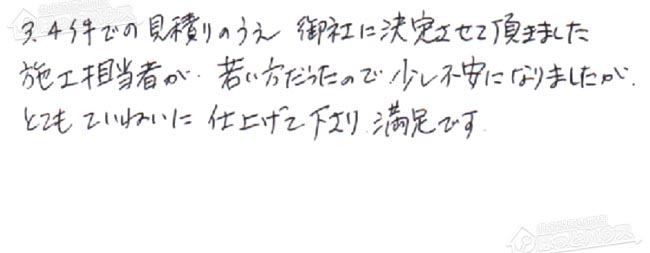 3.4件での見積りのうえ 御社に決定させて頂きました
施工担当者が、若い方だったので少し不安になりましたが、
とても ていねいに 仕上げて下さり、満足です。